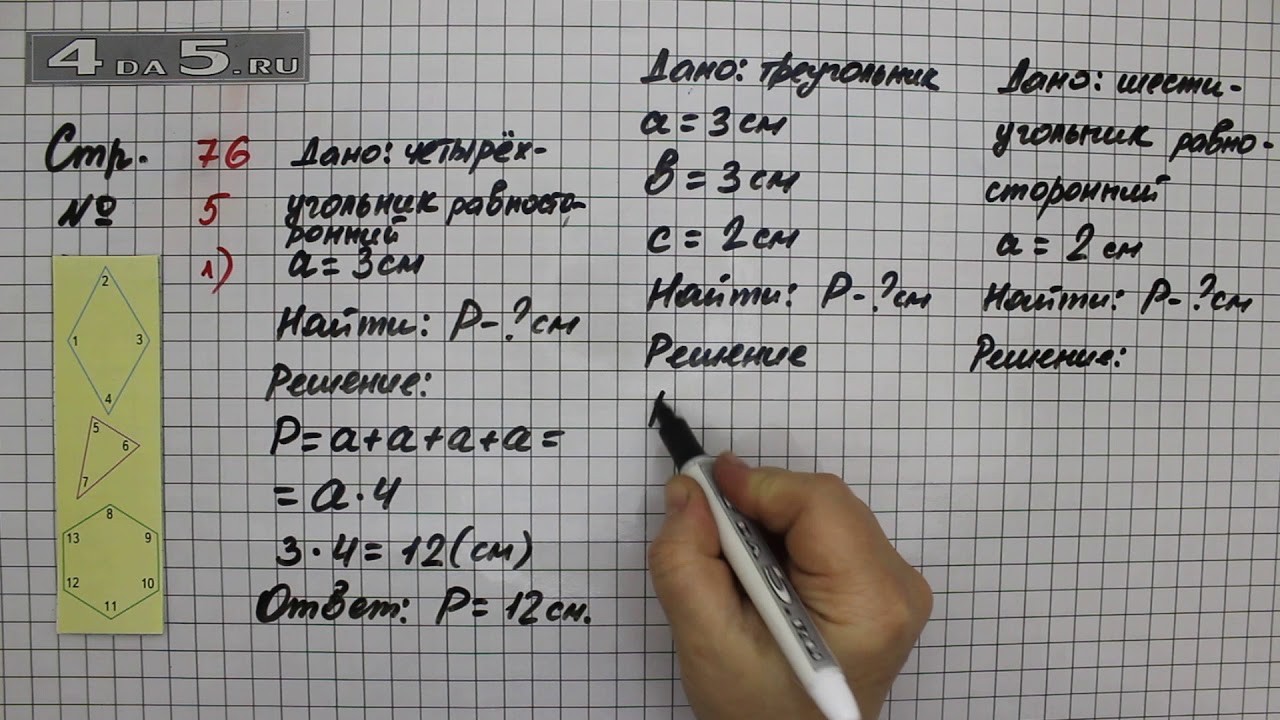 4 DA 5.RU
Стр. 76
№ 5
1)
Дано: четырёх-
угольник равносто-
ронний
a = 3 см
Найти: P - ? см
Решение:
P = a + a + a + a =
= a · 4
3 · 4 = 12 (см)
Ответ: P = 12 см.
Дано: треугольник
a = 3 см
в = 3 см
c = 2 см
Найти: P - ? см
Решение
Дано: шести-
угольник равно-
сторонний
a = 2 см
Найти: P - ? см
Решение:
2
1 3
4
5
6
7
8
13 9
12 10
11